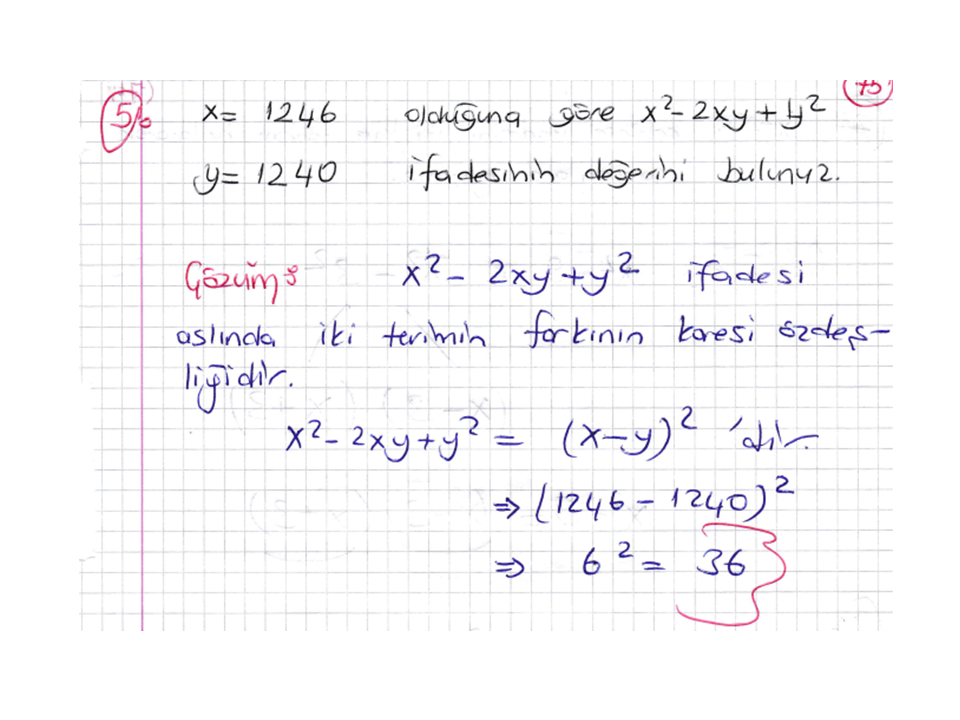 75
5/. x= 1246 olduğuna göre x²- 2xy + y²
y= 1240 ifadesinin değerini bulunuz.
Çözüm: x²- 2xy + y² ifadesi
aslında iki terimin farkının karesi özdeş-
liğidir.
x²- 2xy + y² = (x-y)² 'dir.
⇒ (1246 - 1240)²
⇒ 6² = 36